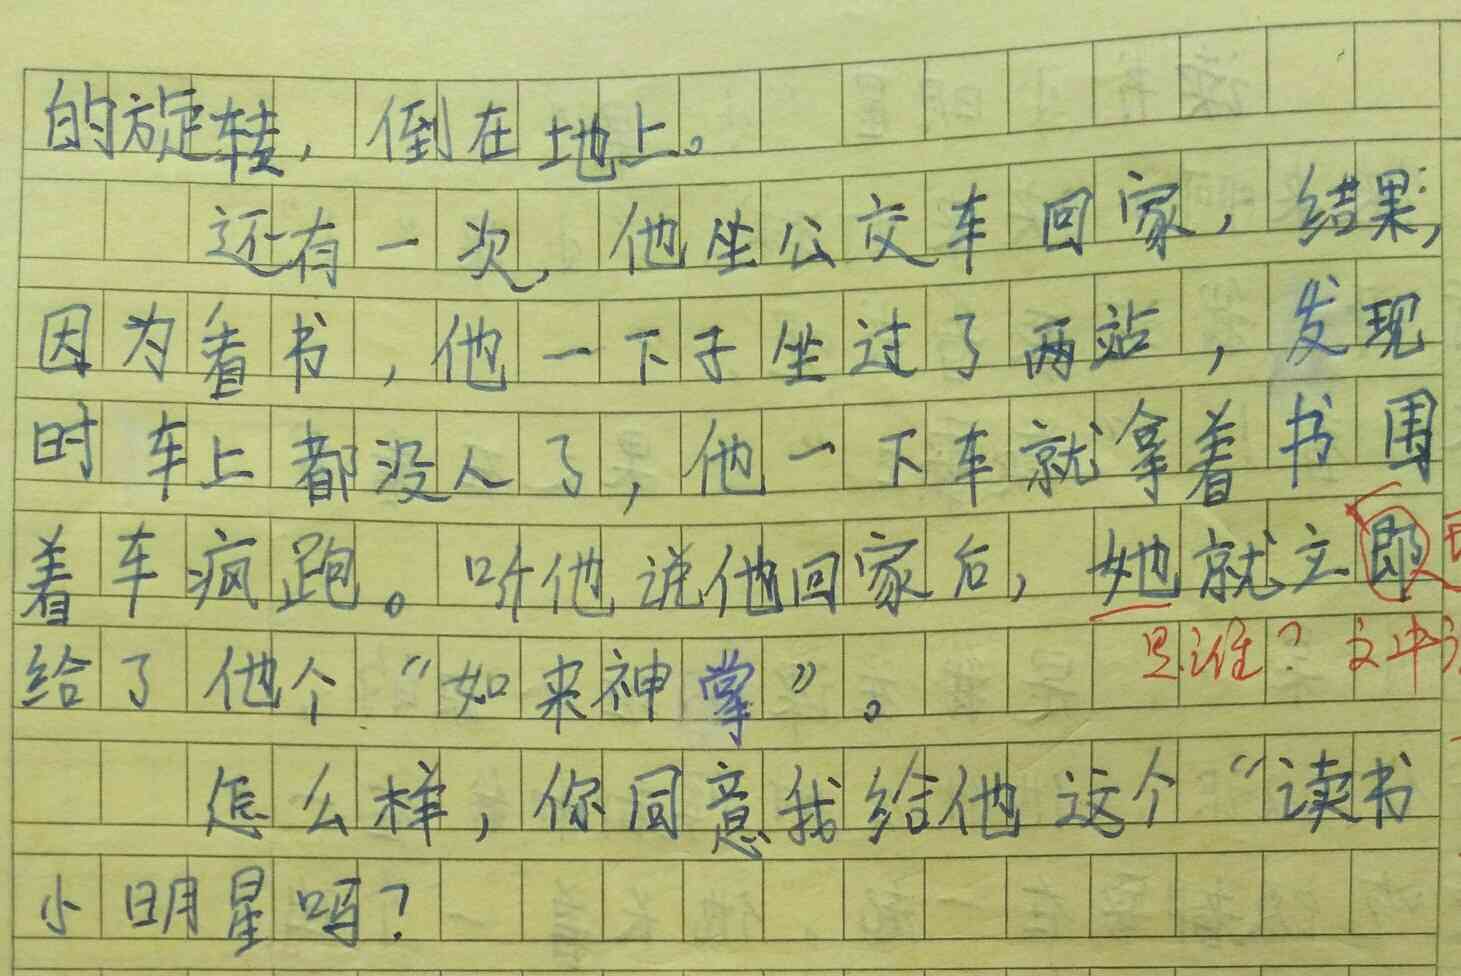 的旋转，倒在地上。
还有一次，他坐公交车回家，结果，
因为看书，他一下子坐过了两站，发现
时车上都没人了，他一下车就拿着书围
着车疯跑。听他说他回家后，她就立即
是谁？文中
给了他个“如来神掌”。
怎么样，你同意我给他这个“读书
小明星吗？